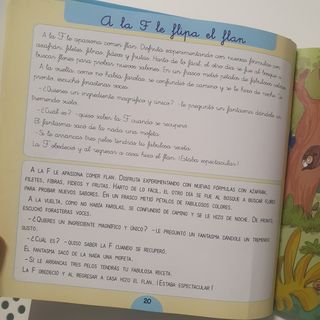 A la F le flipa el flan
A la F le apasiona comer flan. Disfruta experimentando con nuevas fórmulas con
azafrán, filetes, fibras, fideos y frutas. Harto de lo fácil, el otro día se fue al bosque a
buscar flores para probar nuevos sabores. En un frasco metió pétalos de fabulosos colores.
A la vuelta, como no había farolas, se confundió de camino y se le hizo de noche. De
pronto, escuchó forasteras voces.
-¿Quieres un ingrediente magnífico y único? -le preguntó un fantasma dándole un
tremendo susto.
-¿Cuál es? -quiso saber la F cuando se recuperó.
El fantasma sacó de la nada una mofeta.
-Si le arrancas tres pelos tendrás tu fabulosa receta.
La F obedeció y al regresar a casa hizo el flan. ¡Estaba espectacular!
A LA F LE APASIONA COMER FLAN. DISFRUTA EXPERIMENTANDO CON NUEVAS FÓRMULAS CON AZAFRÁN,
FILETES, FIBRAS, FIDEOS Y FRUTAS. HARTO DE LO FÁCIL, EL OTRO DÍA SE FUE AL BOSQUE A BUSCAR FLORES
PARA PROBAR NUEVOS SABORES. EN UN FRASCO METIÓ PÉTALOS DE FABULOSOS COLORES.
A LA VUELTA, COMO NO HABÍA FAROLAS, SE CONFUNDIÓ DE CAMINO Y SE LE HIZO DE NOCHE. DE PRONTO,
ESCUCHÓ FORASTERAS VOCES.
-¿QUIERES UN INGREDIENTE MAGNÍFICO Y ÚNICO? -LE PREGUNTÓ UN FANTASMA DÁNDOLE UN TREMENDO
SUSTO.
-¿CUÁL ES? -QUISO SABER LA F CUANDO SE RECUPERÓ.
EL FANTASMA SACÓ DE LA NADA UNA MOFETA.
-SI LE ARRANCAS TRES PELOS TENDRÁS TU FABULOSA RECETA.
LA F OBEDECIÓ Y AL REGRESAR A CASA HIZO EL FLAN. ¡ESTABA ESPECTACULAR!
20